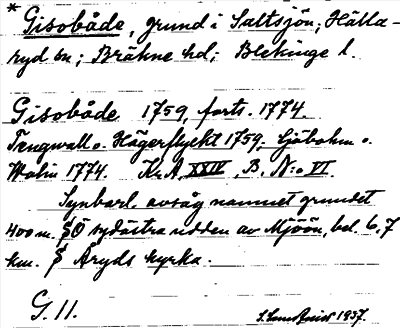 * Gisobåde, grund i Saltsjön; Hälla-
ryd sn; Bräkne hd; Blekinge l.
Gisobåde 1759, forts. 1774.
Tengwall o. Hägerflyckt 1759; Sjöbohm o.
Wolin 1774. Kr. A. XXIV, B, N:o VI.
Synbarl. avsåg namnet grundet
400 m. SÖ sydöstra udden av Mjöön, bel. 6,7
km. S Åryds kyrka.
G. 11.
1937.